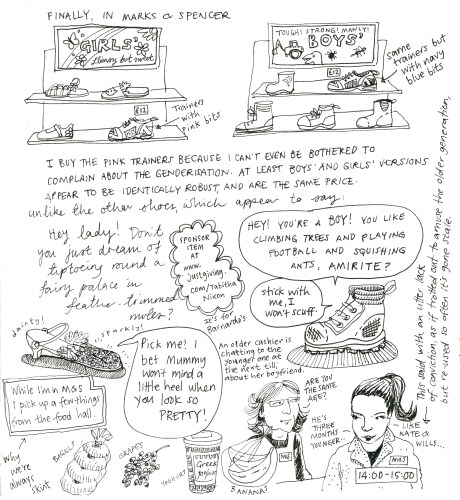 FINALLY, IN MARKS & SPENCER
GIRLS'
flimsy but sweet
£12
Trainers
with
pink bits
TOUGH! STRONG! MANLY!
BOYS'
£12
same
trainers but
with navy
blue bits
I BUY THE PINK TRAINERS BECAUSE I CAN'T EVEN BE BOTHERED TO
COMPLAIN ABOUT THE GENDERISATION. AT LEAST BOYS' AND GIRLS' VERSIONS
APPEAR TO BE IDENTICALLY ROBUST, AND ARE THE SAME PRICE.
unlike the other shoes, which appear to say:
Hey lady! Don't
you just dream of
tiptoeing round a
fairy palace in
feather-trimmed
mules?
SPONSOR
ITEM
AT
www.
justgiving.
com/Tabitha
Nixon
It's for
Barnardo's.
HEY! YOU'RE A BOY! YOU LIKE
CLIMBING TREES AND PLAYING
FOOTBALL AND SQUISHING
ANTS, AMIRITE?
stick with
me, I
won't scuff.
dainty!
sparkly!
Pick me! I
bet Mummy
won't mind a
little heel when
you look so
PRETTY!
An older cashier is
chatting to the
younger one at
the next till,
about her boyfriend.
ARE YOU
THE SAME
AGE?
HE'S
THREE
MONTHS
YOUNGER-
-LIKE
KATE &
WILLS...
This said with an utter lack
of conviction, as if trotted out to amuse the older generation,
but re-used so often it's gone stale.
While I'm in M&S
I pick up a few things
from the food hall.
Why
we're
always
skint
BAGELS
GRAPES
YOGHURT
Greek
Yoghurt
BANANAS
M&S
14:00-15:00